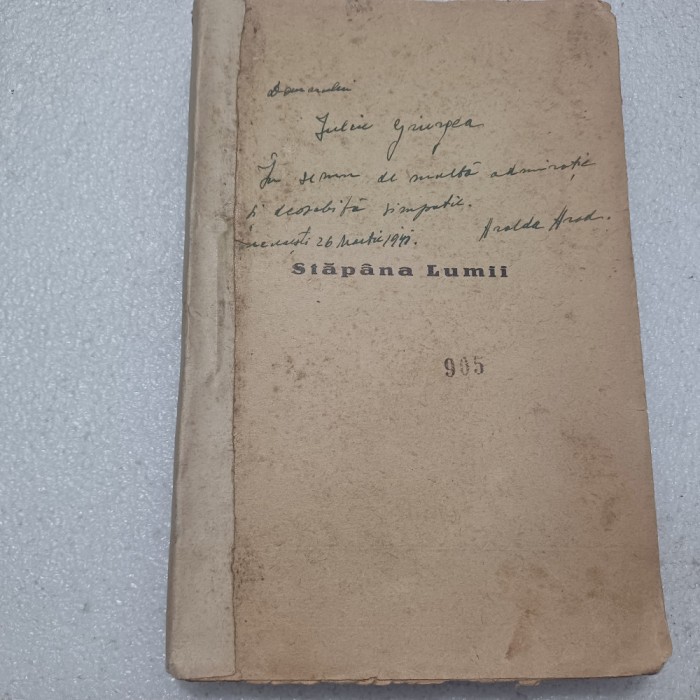 Domnului
Iuliu Giurgea
În semn de multă admirație
și deosebită simpatie.
București 26 Martie 1941. Aralda Arad.
Stăpâna Lumii
905